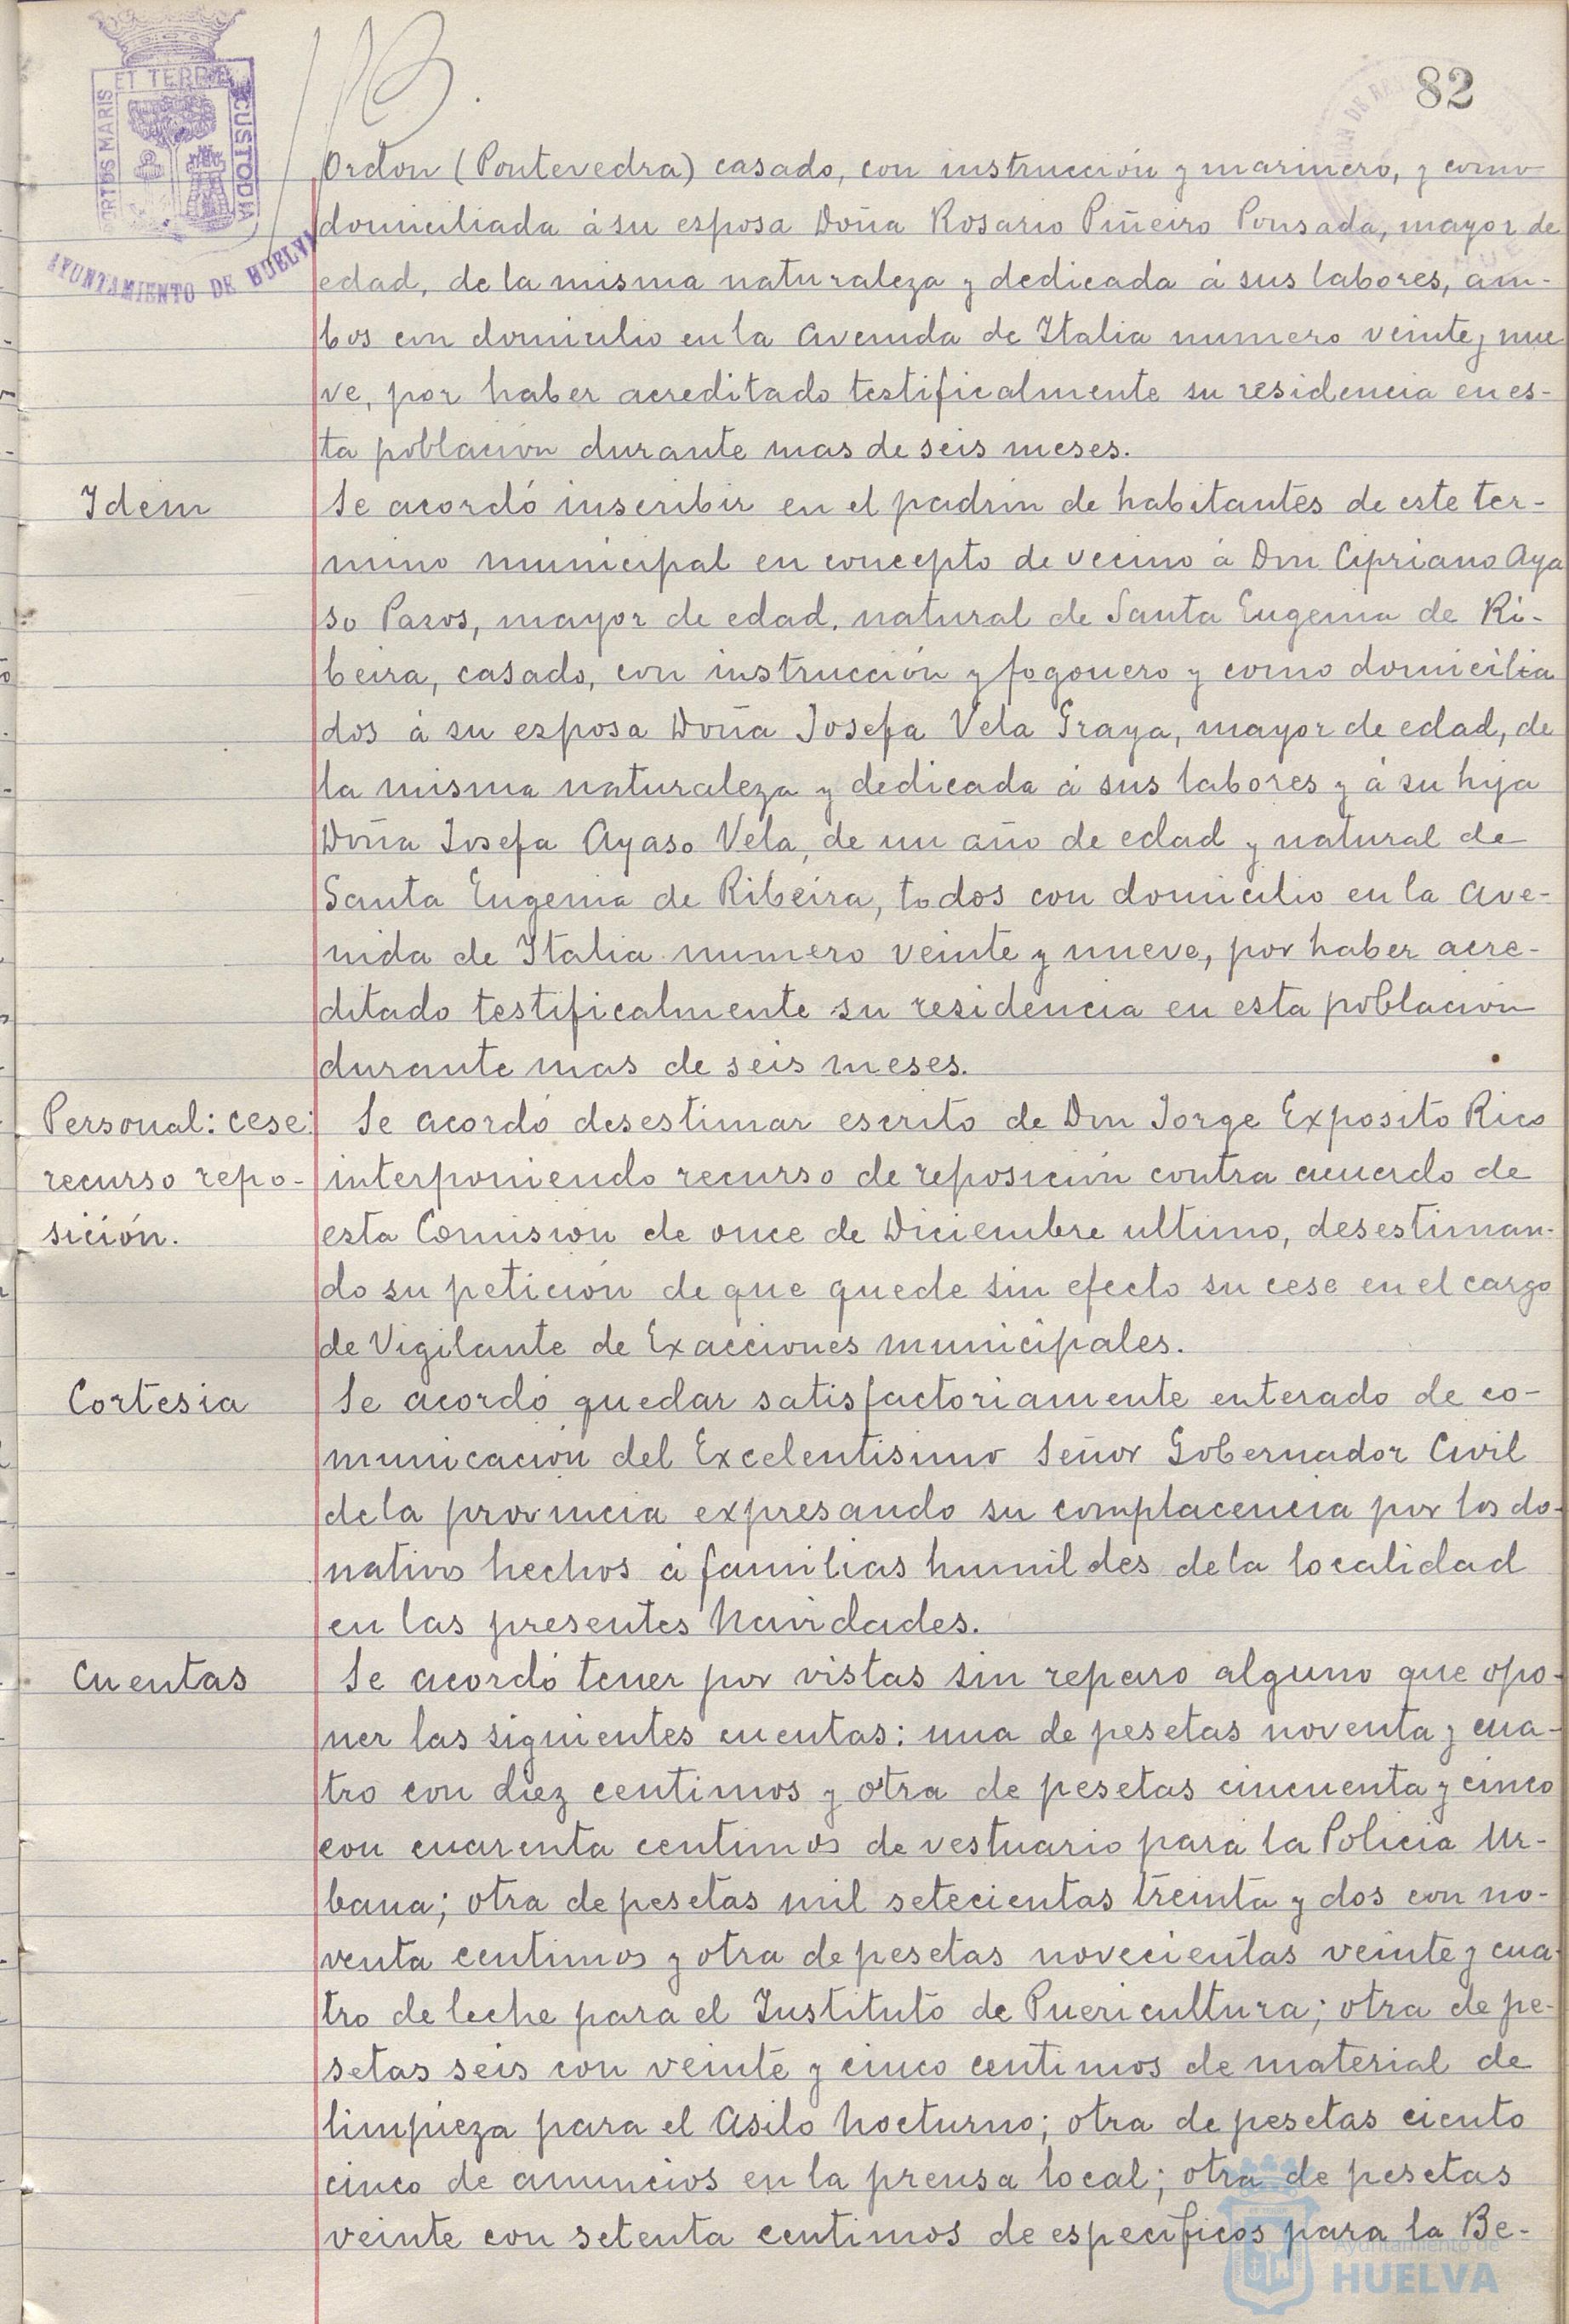 82
PORTUS MARIS ET TERRE CUSTODIA
AYUNTAMIENTO DE HUELVA
Ordon (Pontevedra) casado, con instrucción y marinero, y como
domiciliada á su esposa Doña Rosario Piñeiro Pousada, mayor de
edad, de la misma naturaleza y dedicada á sus labores, am-
bos con domicilio en la Avenida de Italia numero veinte y nue
ve, por haber acreditado testificalmente su residencia en es-
ta población durante mas de seis meses.
Idem
Se acordó inscribir en el padrón de habitantes de este ter-
mino municipal en concepto de vecino á Don Cipriano Aya
so Pazos, mayor de edad, natural de Santa Eugenia de Ri-
beira, casado, con instrucción y fogonero y como domicilia
dos á su esposa Doña Josefa Vela Graya, mayor de edad, de
la misma naturaleza y dedicada á sus labores y á su hija
Doña Josefa Ayaso Vela, de un año de edad y natural de
Santa Eugenia de Ribeira, todos con domicilio en la Ave-
nida de Italia numero veinte y nueve, por haber acre-
ditado testificalmente su residencia en esta población
durante mas de seis meses.
Personal: cese:
recurso repo-
sición.
Se acordó desestimar escrito de Don Jorge Exposito Rico
interponiendo recurso de reposición contra acuerdo de
esta Comisión de once de Diciembre ultimo, desestiman-
do su petición de que quede sin efecto su cese en el cargo
de Vigilante de Exacciones municipales.
Cortesia
Se acordó quedar satisfactoriamente enterado de co-
municación del Excelentisimo Señor Gobernador Civil
de la provincia expresando su complacencia por los do-
nativos hechos á familias humildes de la localidad
en las presentes Navidades.
Cuentas
Se acordó tener por vistas sin reparo alguno que opo-
ner las siguientes cuentas: una de pesetas noventa y cua-
tro con diez centimos y otra de pesetas cincuenta y cinco
con cuarenta centimos de vestuario para la Policia Ur-
bana; otra de pesetas mil setecientas treinta y dos con no-
venta centimos y otra de pesetas novecientas veinte y cua-
tro de leche para el Instituto de Puericultura; otra de pe-
setas seis con veinte y cinco centimos de material de
limpieza para el Asilo Nocturno; otra de pesetas ciento
cinco de anuncios en la prensa local; otra de pesetas
veinte con setenta centimos de especificos para la Be-
Ayuntamiento de
HUELVA